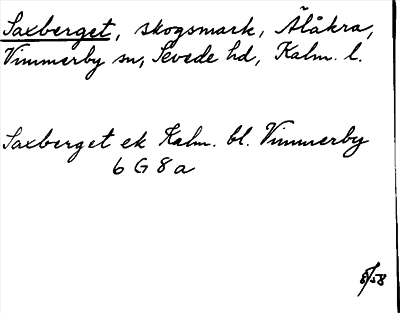 Saxberget, skogsmark, Älåkra,
Vimmerby sn, Sevede hd, Kalm. l.
Saxberget ek Kalm. bl. Vimmerby
6 G 8 a
8/58